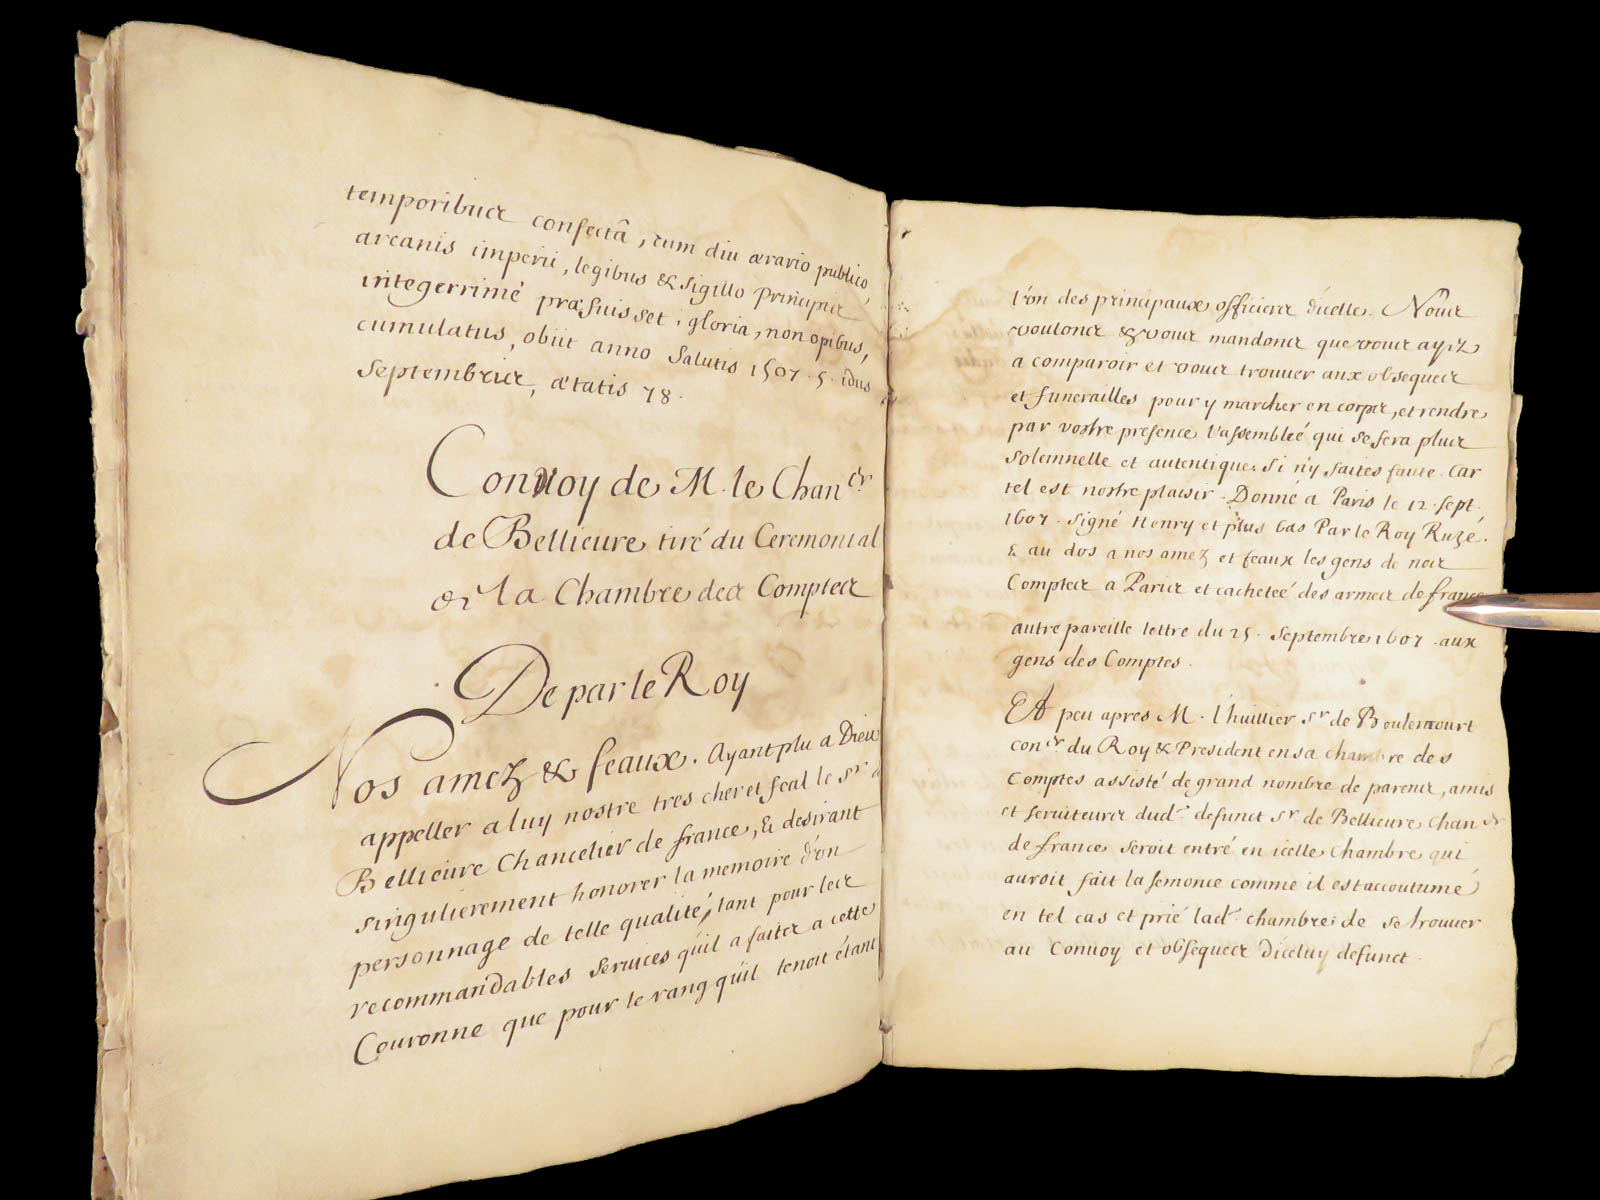 temporibus confectâ, cum diu ærario publico,
arcanis imperii, legibus & sigillo Principis
integerrimé præfuisset, gloria, non opibus,
cumulatus, obiit anno Salutis 1507. 5. idus
Septembris, ætatis 78.
Convoy de M. le Chan.er
de Bellieure tiré du Ceremonial
de la Chambre des Comptes
De par le Roy
Nos amez & feaux. Ayant plu a Dieu
appeller a luy nostre tres cher et feal le Sr d
Bellieure Chancelier de france, & desirant
singulierement honorer la memoire d'un
personnage de telle qualité, tant pour les
recommandables services qu'il a faites a cette
Couronne que pour le rang qu'il tenoit étant
l'un des principaux officiers d'icelle. Nous
voulons & vous mandons que vous ayez
a comparoir et vous trouver aux obseques
et funerailles pour y marcher en corps, et rendre
par vostre presence l'assemblée qui se fera plus
solemnelle et autentique. Si n'y faites faute. Car
tel est nostre plaisir. Donné a Paris le 12. sept.
1607. signé Henry et plus bas Par le Roy Ruzé.
& au dos a nos amez et feaux les gens de nos
Comptes a Paris et cacheteé des armes de france
autre pareille lettre du 25. Septembre 1607. aux
gens des Comptes.
Et peu apres M. l'huillier Sr de Boulencourt
con.er du Roy & President en sa chambre des
Comptes assisté de grand nombre de parens, amis
et seruiteurs dud.t defunct Sr de Bellieure Chan.er
de france seroit entré en icelle Chambre qui
auroit fait la semonce comme il est accoutumé
en tel cas et prié lad.e chambre de se trouver
au Convoy et obseques d'iceluy defunct.